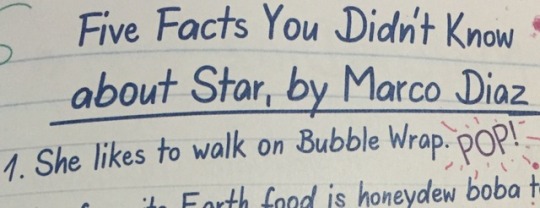 Five Facts You Didn't Know
about Star, by Marco Diaz
1. She likes to walk on Bubble Wrap. POP!
Earth food is honeydew boba